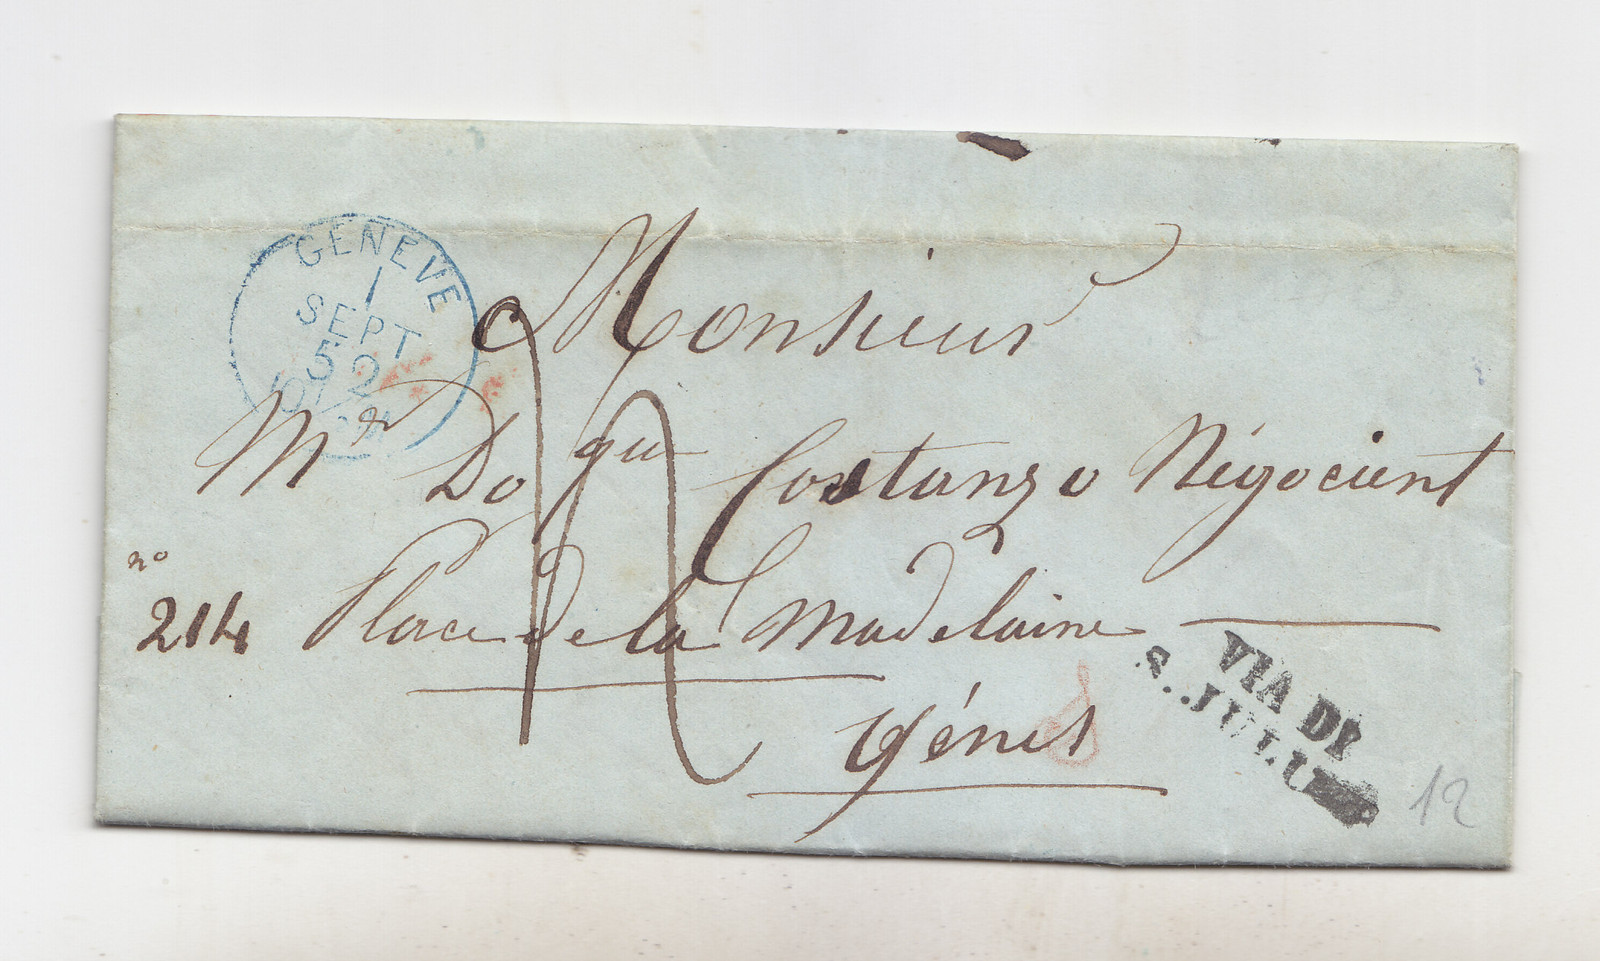 GENEVE
1
SEPT
52
Monsieur
Mr Doque Costanzo Négocient
no
214 Place de la Madelaine
VIA DI
S..JULI
Génes
12